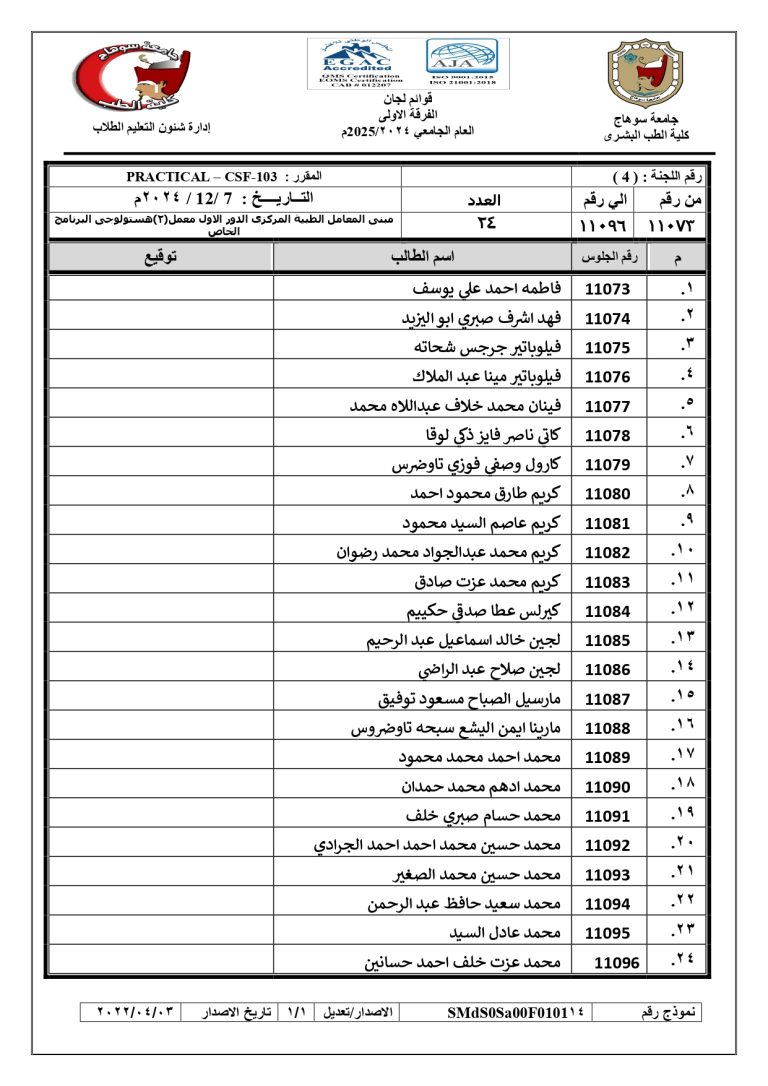 جامعة سوهاج
كلية الطب
إدارة شئون التعليم الطلاب
EGAC
Accredited
QMS Certification
EOMS Certification
CAB # 012207
AJA
ISO 9001:2015
ISO 21001:2018
قوائم لجان
الفرقة الاولى
العام الجامعي ٢٠٢٤/2025م
جامعة سوهاج
كلية الطب البشرى
رقم اللجنة : ( 4 )
المقرر : PRACTICAL – CSF-103
من رقم الي رقم العدد التـــاريـــــخ : 7 /12 / ٢٠٢٤م
١١٠٧٣ ١١٠٩٦ ٢٤ مبنى المعامل الطبية المركزى الدور الاول معمل(٢)هستولوجى البرنامج الخاص
م رقم الجلوس اسم الطالب توقيع
١. 11073 فاطمه احمد علي يوسف
٢. 11074 فهد اشرف صبري ابو اليزيد
٣. 11075 فيلوباتير جرجس شحاته
٤. 11076 فيلوباتير مينا عبد الملاك
٥. 11077 فينان محمد خلاف عبداللاه محمد
٦. 11078 كاتي ناصر فايز ذكي لوقا
٧. 11079 كارول وصفي فوزي تاوضرس
٨. 11080 كريم طارق محمود احمد
٩. 11081 كريم عاصم السيد محمود
١٠. 11082 كريم محمد عبدالجواد محمد رضوان
١١. 11083 كريم محمد عزت صادق
١٢. 11084 كيرلس عطا صدقي حكييم
١٣. 11085 لجين خالد اسماعيل عبد الرحيم
١٤. 11086 لجين صلاح عبد الراضي
١٥. 11087 مارسيل الصباح مسعود توفيق
١٦. 11088 مارينا ايمن اليشع سبحه تاوضروس
١٧. 11089 محمد احمد محمد محمود
١٨. 11090 محمد ادهم محمد حمدان
١٩. 11091 محمد حسام صبري خلف
٢٠. 11092 محمد حسين محمد احمد احمد الجرادي
٢١. 11093 محمد حسين محمد الصغير
٢٢. 11094 محمد سعيد حافظ عبد الرحمن
٢٣. 11095 محمد عادل السيد
٢٤. 11096 محمد عزت خلف احمد حسانين
نموذج رقم SMdS0Sa00F0101١٤ الاصدار/تعديل ١/١ تاريخ الاصدار ٢٠٢٢/٠٤/٠٣